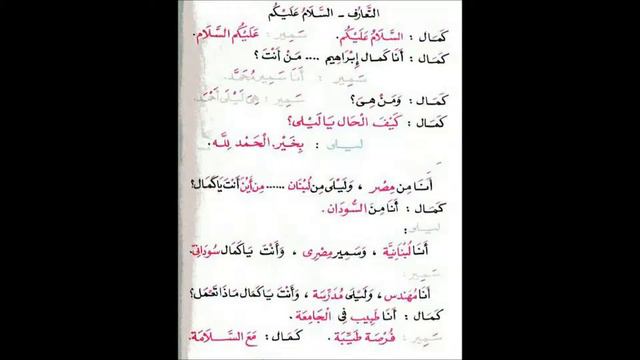 التَّعَارُف - السَّلَامُ عَلَيْكُم
كَمَال : السَّلَامُ عَلَيْكُم. سَمِير : عَلَيْكُم السَّلَام.
كَمَال : أَنَا كَمَال إِبْرَاهِيم .... مَنْ أَنْتَ؟
سَمِير : أَنَا سَمِير مُحَمَّد.
كَمَال : وَمَنْ هِيَ؟ سَمِير : هِيَ لَيْلَى أَحْمَد.
كَمَال : كَيْفَ الْحَال يَا لَيْلَى؟
ليلى : بِخَيْر، الْحَمْدُ لِلَّه.
أَنَا مِن مِصْر ، وَلَيْلَى مِن لُبْنَان ...... مِن أَيْنَ أَنْتَ يَا كَمَال؟
كَمَال : أَنَا مِنَ السُّودَان.
ليلى :
أَنَا لُبْنَانِيَّة ، وَسَمِير مِصْرِى ، وَأَنْتَ يَا كَمَال سُودَانِى.
سَمِير :
أَنَا مُهَنْدِس ، وَلَيْلَى مُدَرِّسَة ، وَأَنْتَ يَا كَمَال مَاذَا تَعْمَل؟
كَمَال : أَنَا طَبِيب فِى الْجَامِعَة.
سَمِير : فُرْصَة طَيِّبَة. كَمَال : مَعَ السَّلَامَة.